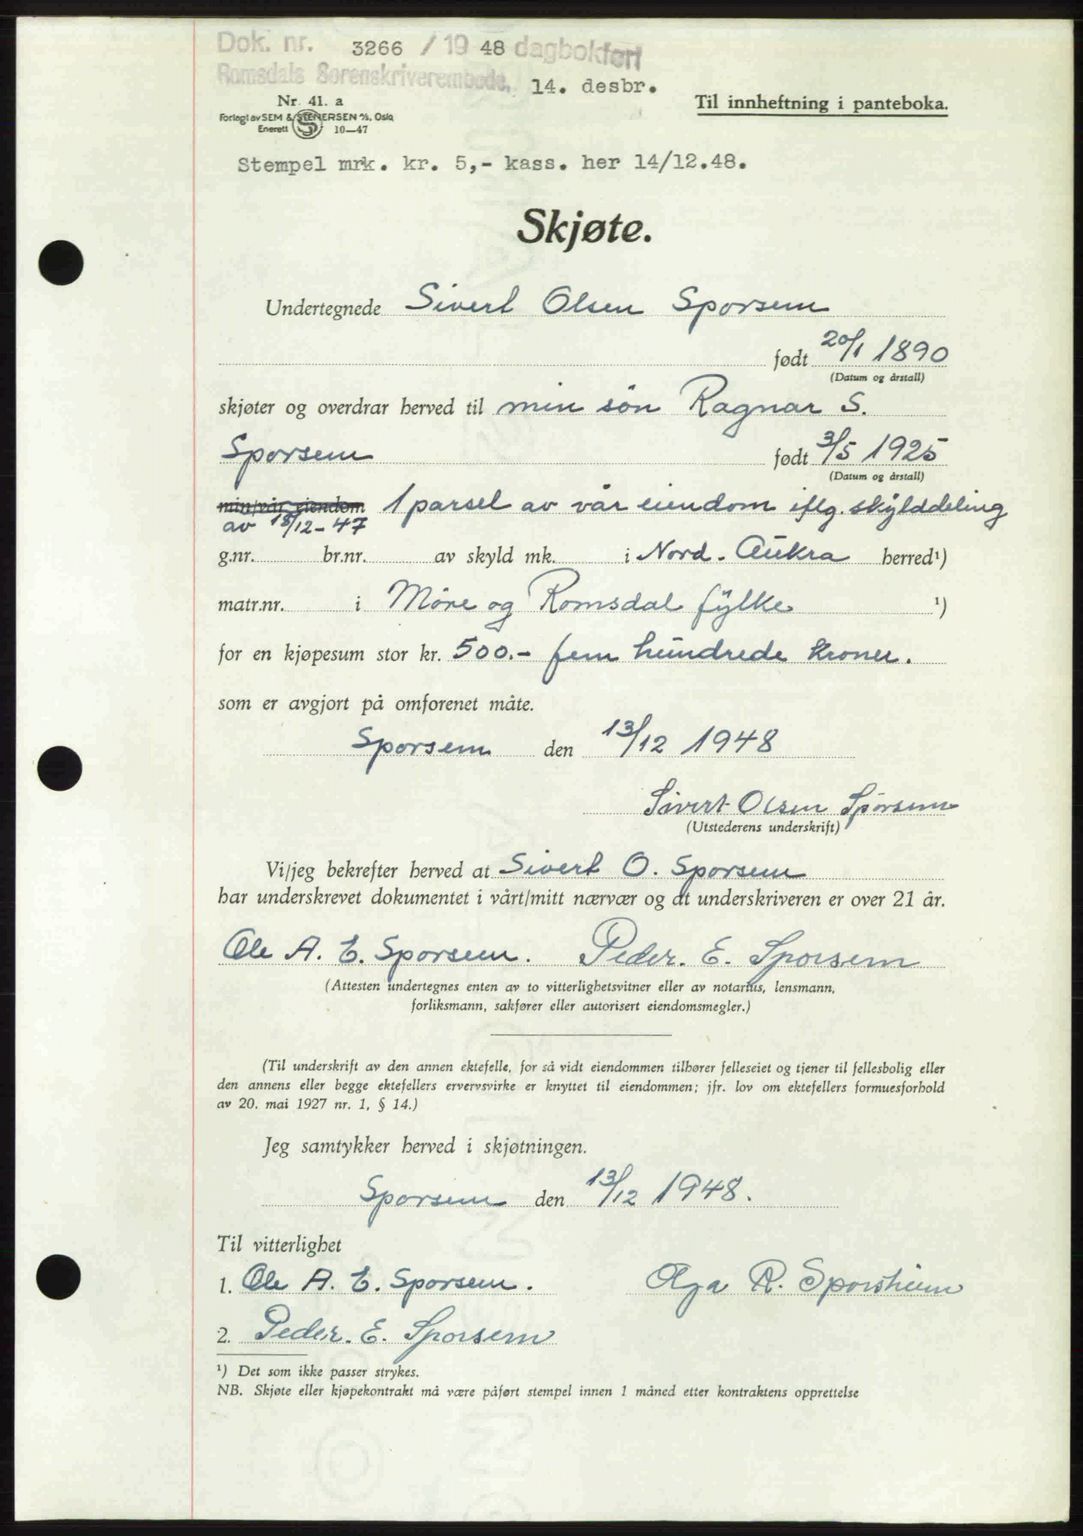 Dok. nr. 3266 / 19 48 dagbokført
Romsdals Sorenskriverembede, 14. desbr.
Nr. 41. a
Forlagt av SEM & STENERSEN A/S, Oslo
Enerett S 10—47
Til innheftning i panteboka.
Stempel mrk. kr. 5,- kass. her 14/12.48.
Skjøte.
Undertegnede Sivert Olsen Sporsem
født 20/1 1890
(Datum og årstall)
skjøter og overdrar herved til min sön Ragnar S.
Sporsem født 3/5 1925
(Datum og årstall)
min/vår eiendom 1 parsel av vår eiendom iflg. skylddeling
av 15/12-47
g.nr. br.nr. av skyld mk. i Nord-Aukra herred¹)
matr.nr. i Möre og Romsdal fylke ¹)
for en kjøpesum stor kr. 500.- fem hundrede kroner.
som er avgjort på omforenet måte.
Sporsem den 13/12 1948
Sivert Olsen Sporsem
(Utstederens underskrift)
Vi/jeg bekrefter herved at Sivert O. Sporsem
har underskrevet dokumentet i vårt/mitt nærvær og at underskriveren er over 21 år.
Ole A. E. Sporsem. Peder. E. Sporsem
(Attesten undertegnes enten av to vitterlighetsvitner eller av notarius, lensmann,
forliksmann, sakfører eller autorisert eiendomsmegler.)
(Til underskrift av den annen ektefelle, for så vidt eiendommen tilhører felleseiet og tjener til fellesbolig eller
den annens eller begge ektefellers ervervsvirke er knyttet til eiendommen; jfr. lov om ektefellers formuesforhold
av 20. mai 1927 nr. 1, § 14.)
Jeg samtykker herved i skjøtningen.
Sporsem den 13/12 1948.
Til vitterlighet
1. Ole A. E. Sporsem. Olga R. Sporsheim
2. Peder. E. Sporsem
¹) Det som ikke passer strykes.
NB. Skjøte eller kjøpekontrakt må være påført stempel innen 1 måned etter kontraktens opprettelse